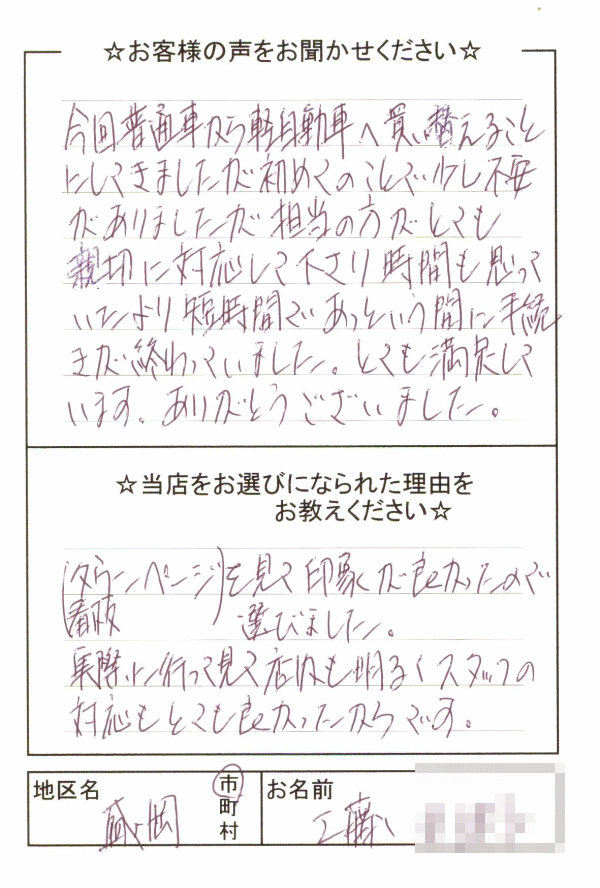 ☆お客様の声をお聞かせください☆
今回普通車から軽自動車へ買い替えること
にしてきましたが初めてのことで少し不安
がありましたが担当の方がとても
親切に対応して下さり時間も思って
いたより短時間であっという間に手続
きが終わっていました。とても満足して
います。ありがとうございました。
☆当店をお選びになられた理由を
お教えください☆
(タウンページ)を見て印象が良かったので
看板 選びました。
実際に行って見て店内も明るくスタッフの
対応もとても良かったからです。
地区名 盛岡 市 お名前 工藤
町
村